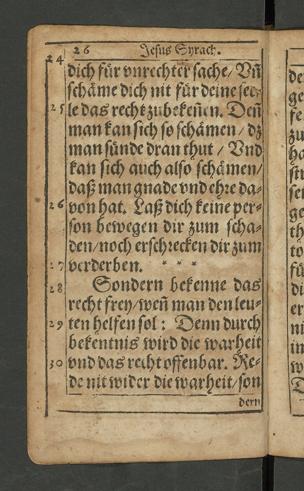 26 Jesus Syrach.
24
dich für vnrechter sache / Vñ
schäme dich nit für deine see-
25 le das recht zubekeñen. Deñ
man kan sich so schämen / dz
man sünde dran thut / Vnd
kan sich auch also schämen /
daß man gnade vnd ehre da-
26 von hat. Laß dich keine per-
son bewegen dir zum scha-
den / noch erschrecken dir zum
27 verderben. * * *
28 Sondern bekenne das
recht frey / weñ man den leu-
29 ten helfen sol : Denn durch
bekentnis wird die warheit
30 vnd das recht offenbar. Re-
de nit wider die warheit / son
dern